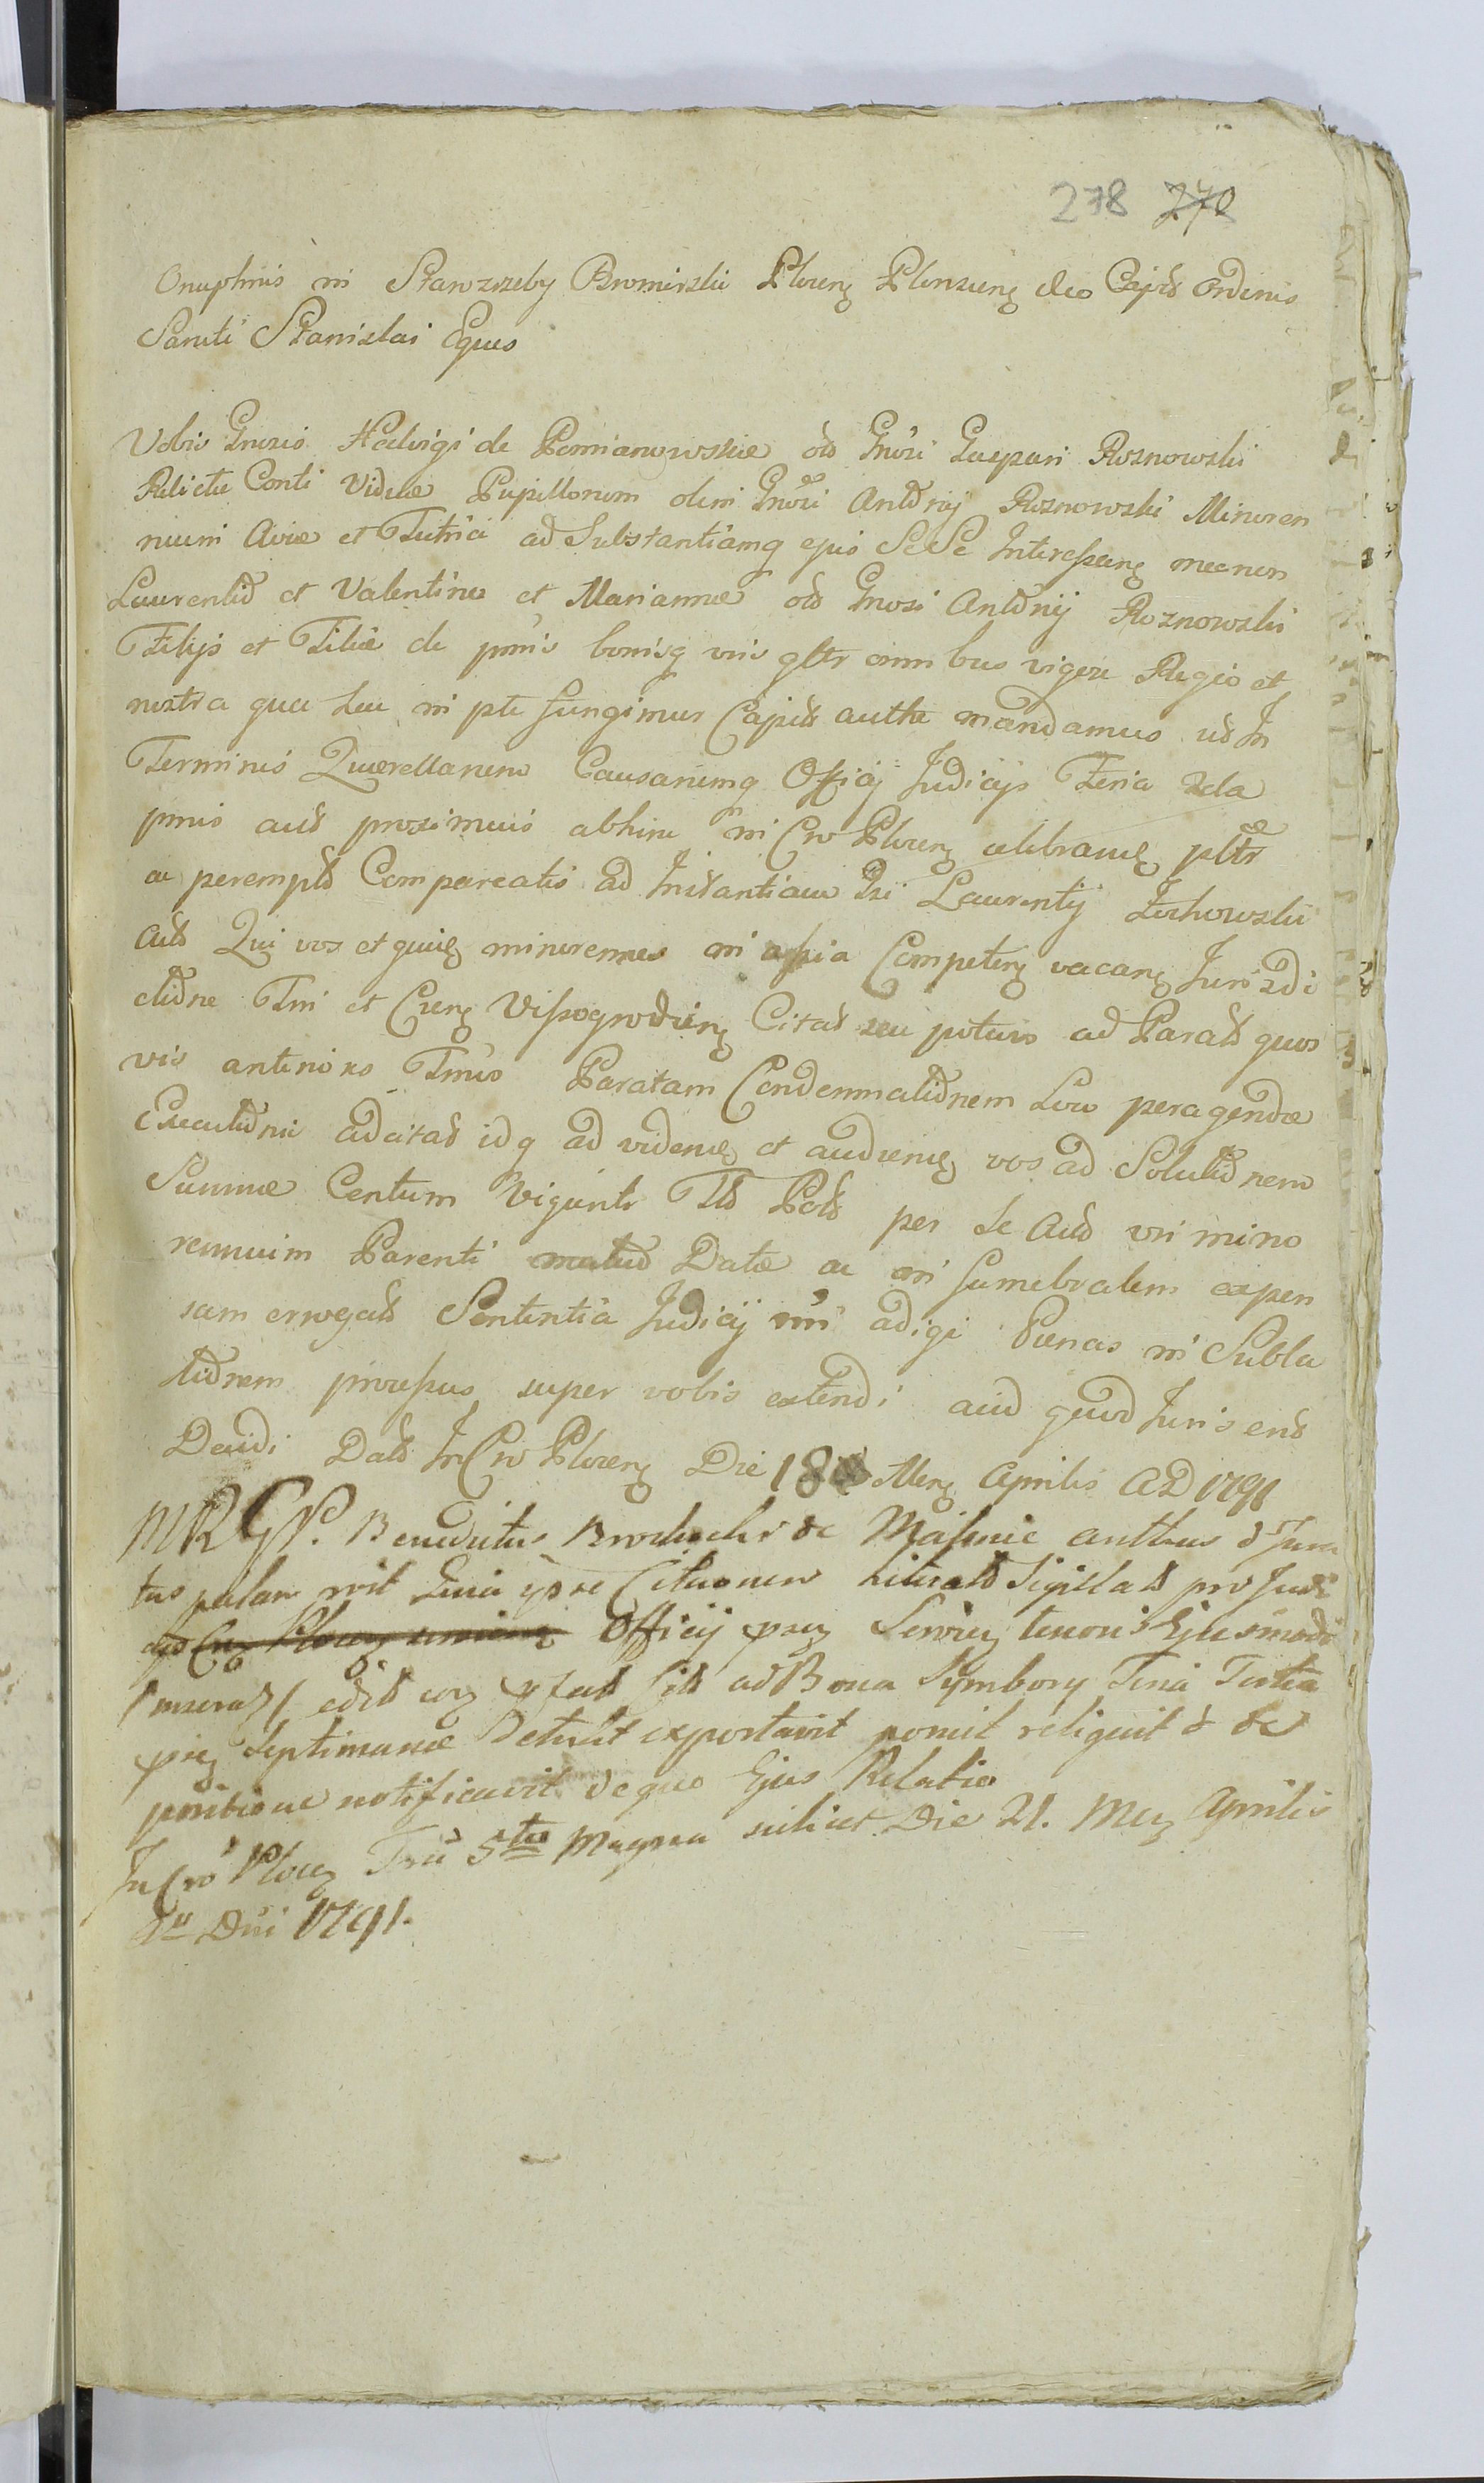 278 270
Onuphrius in Starozreby Bromirski Plocen Plonscen &eo Capts Ordinis
Sancti Stanislai Eques
Vobis Gnosis Hedvigi de Pomianowskie od Gnosi Gaspari Roznowski
Relicte Conti Viduæ Pupillorum olim Gnosi Antonij Roznowski Minoren
nium Aviæ et Tutrici ad Substantiamq ejus SeSe Interessenq necnon
Laurentio et Valentino et Mariannæ od Gnosi Antonij Roznowski
Filijs et Filiæ de psonis bonisq vris gltr omnibus vigore Regio et
nostra qua hac in pte fungimur Captli autthe mandamus ut In
Terminis Querellarum Causarumq Officij Judicijs Feria 2da
pmis aut proximius abhinc in Cro Plocen celebranq psltr
ac perempt Compareatis ad Instantiam Gsi Laurentij Zochowski
Acts Qui vos et quid minorennes in assia Competen vacan Jurisdi
ctione Tmi et Cren Vissogrodien Citat seu potius ad Parat quos
vis anteriores Tmis Paratam Condemnationem Loco peragendæ
Executionis adcitat idq ad videndq et audienq vos ad Solutionem
Summæ Centum Viginti Flt Polt per se Act vri mino
rennium Parenti mutuo Datæ ac in funebralem expen
sam errogat Sententia Judicij nri adigi Pænas in Subla
tionem processus super vobis extendi aliud quod Juris erit
Decidi Datt In Cro Plocen Die 18 Men Aprilis AD 1791
MRGP. Benedictus Brochocki de Massinie autthus & Jura
tus palam rnit Quia ipse Citaonem Literalt Sigillatt pro Judi
cijs Officij psen Sewren tenoris Ejusmodi
/inserat/ ad Bona Symbory Feria Tertia
psen Septimanæ Detulit exportavit posuit reliquit & de
positione notificavit de quo Ejus Relatio
In Cro Plocen Fria 5ta Magna scilicet Die 21. Men Aprilis
Ao Dni 1791.